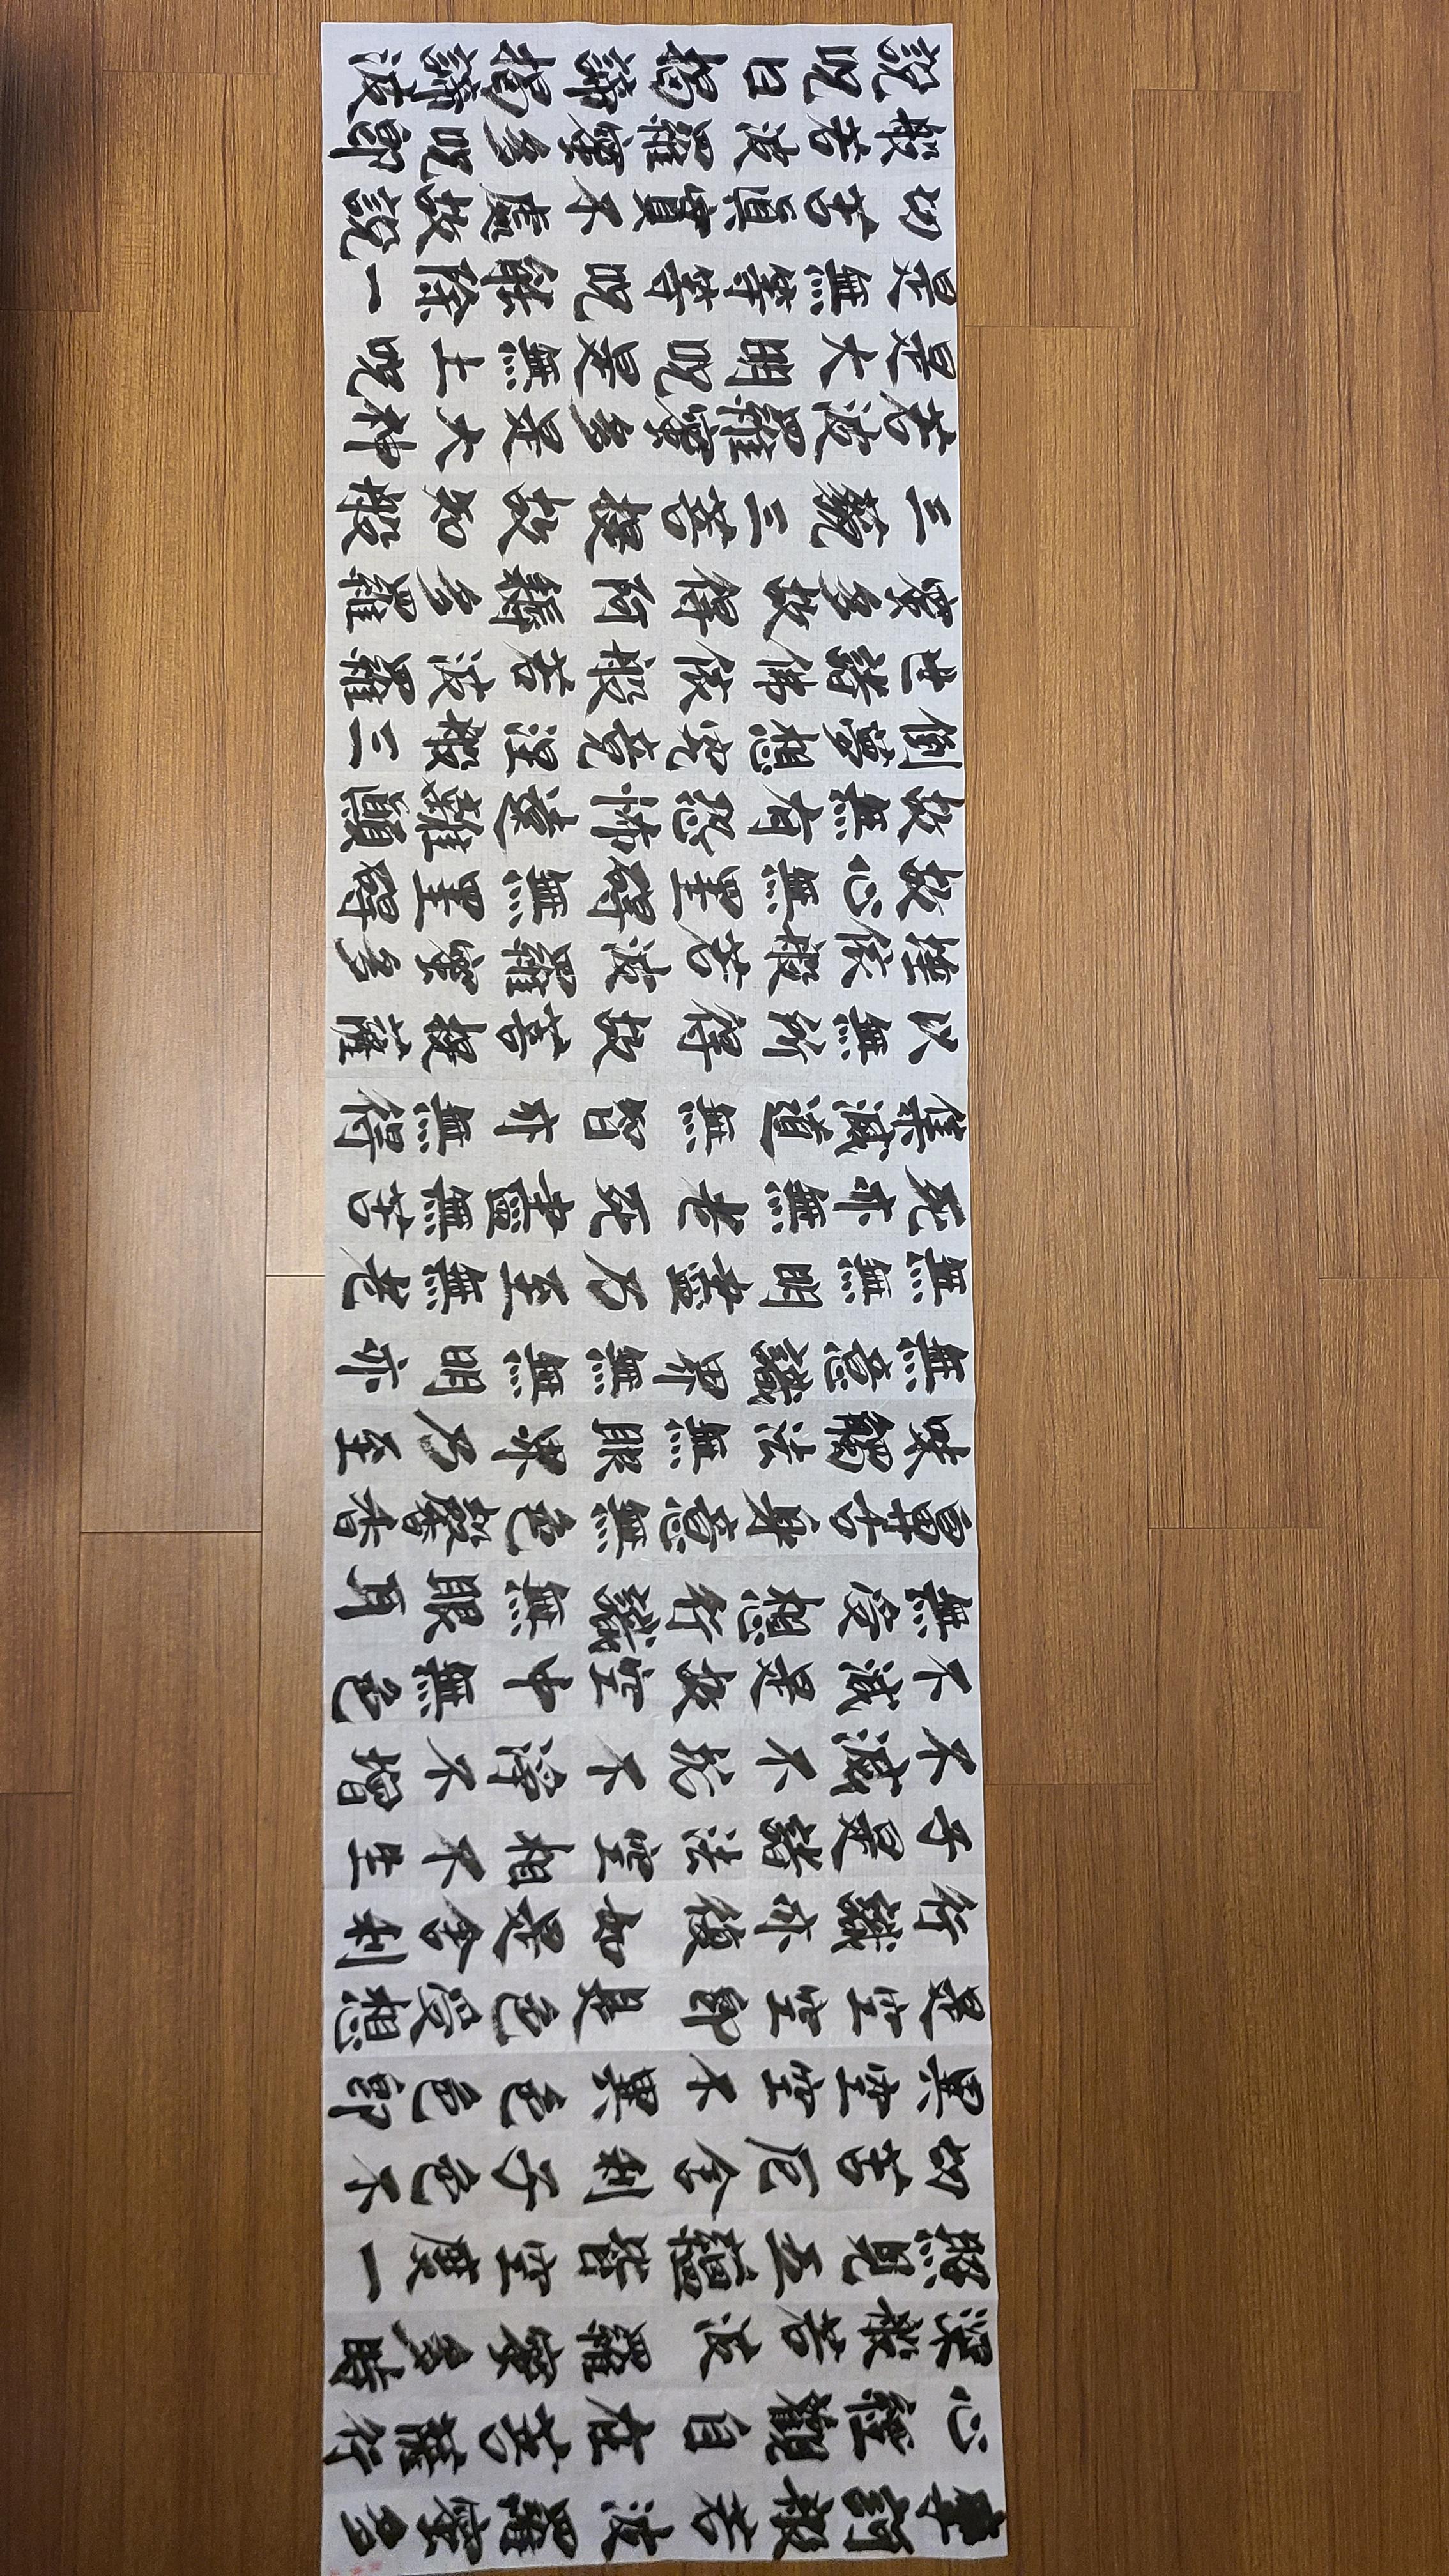 摩訶般若波羅蜜多
心經觀自在菩薩行
深般若波羅蜜多時
照見五蘊皆空度一
切苦厄舍利子色不
異空空不異色色即
是空空即是色受想
行識亦復如是舍利
子是諸法空相不生
不滅不垢不淨不增
不減是故空中無色
無受想行識無眼耳
鼻舌身意無色聲香
味觸法無眼界乃至
無意識界無無明亦
無無明盡乃至無老
死亦無老死盡無苦
集滅道無智亦無得
以無所得故菩提薩
埵依般若波羅蜜多
故心無罣礙無罣礙
故無有恐怖遠離顛
倒夢想究竟涅槃三
世諸佛依般若波羅
蜜多故得阿耨多羅
三藐三菩提故知般
若波羅蜜多是大神
是大明呪是無上呪
是無等等呪能除一
切苦眞實不虛故說
般若波羅蜜多呪即
說呪曰揭諦揭諦波